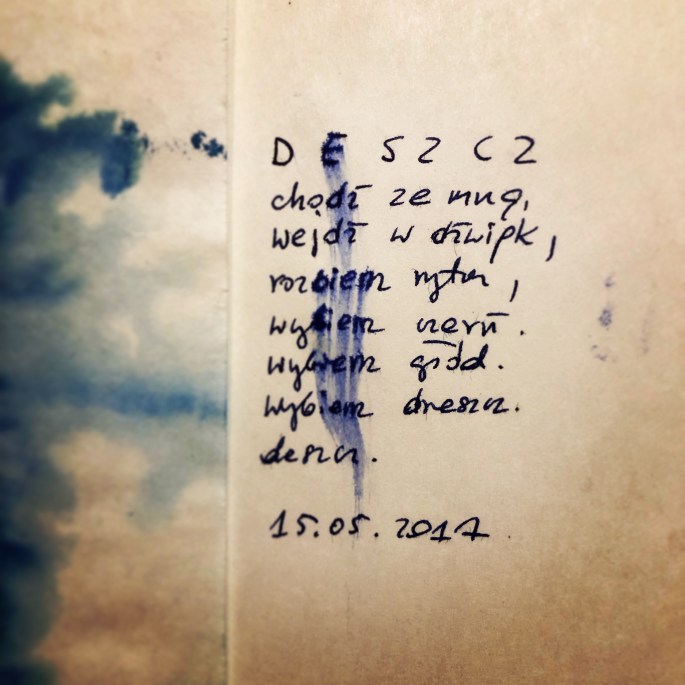 DESZCZ
chodź ze mną,
wejdź w dźwięk,
rozbierz rytm,
wybierz czerń.
wybierz głód.
wybierz dreszcz.
deszcz.
15.05.2017